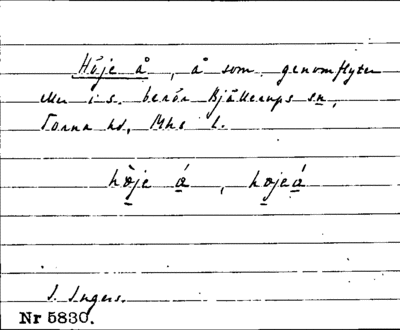 Höje å, å som genomflyter
eller i s. berör Bjällerups sn,
Torna hd, Mhs l.
höje å, höjeå
I. Ingers.
Nr 5830.